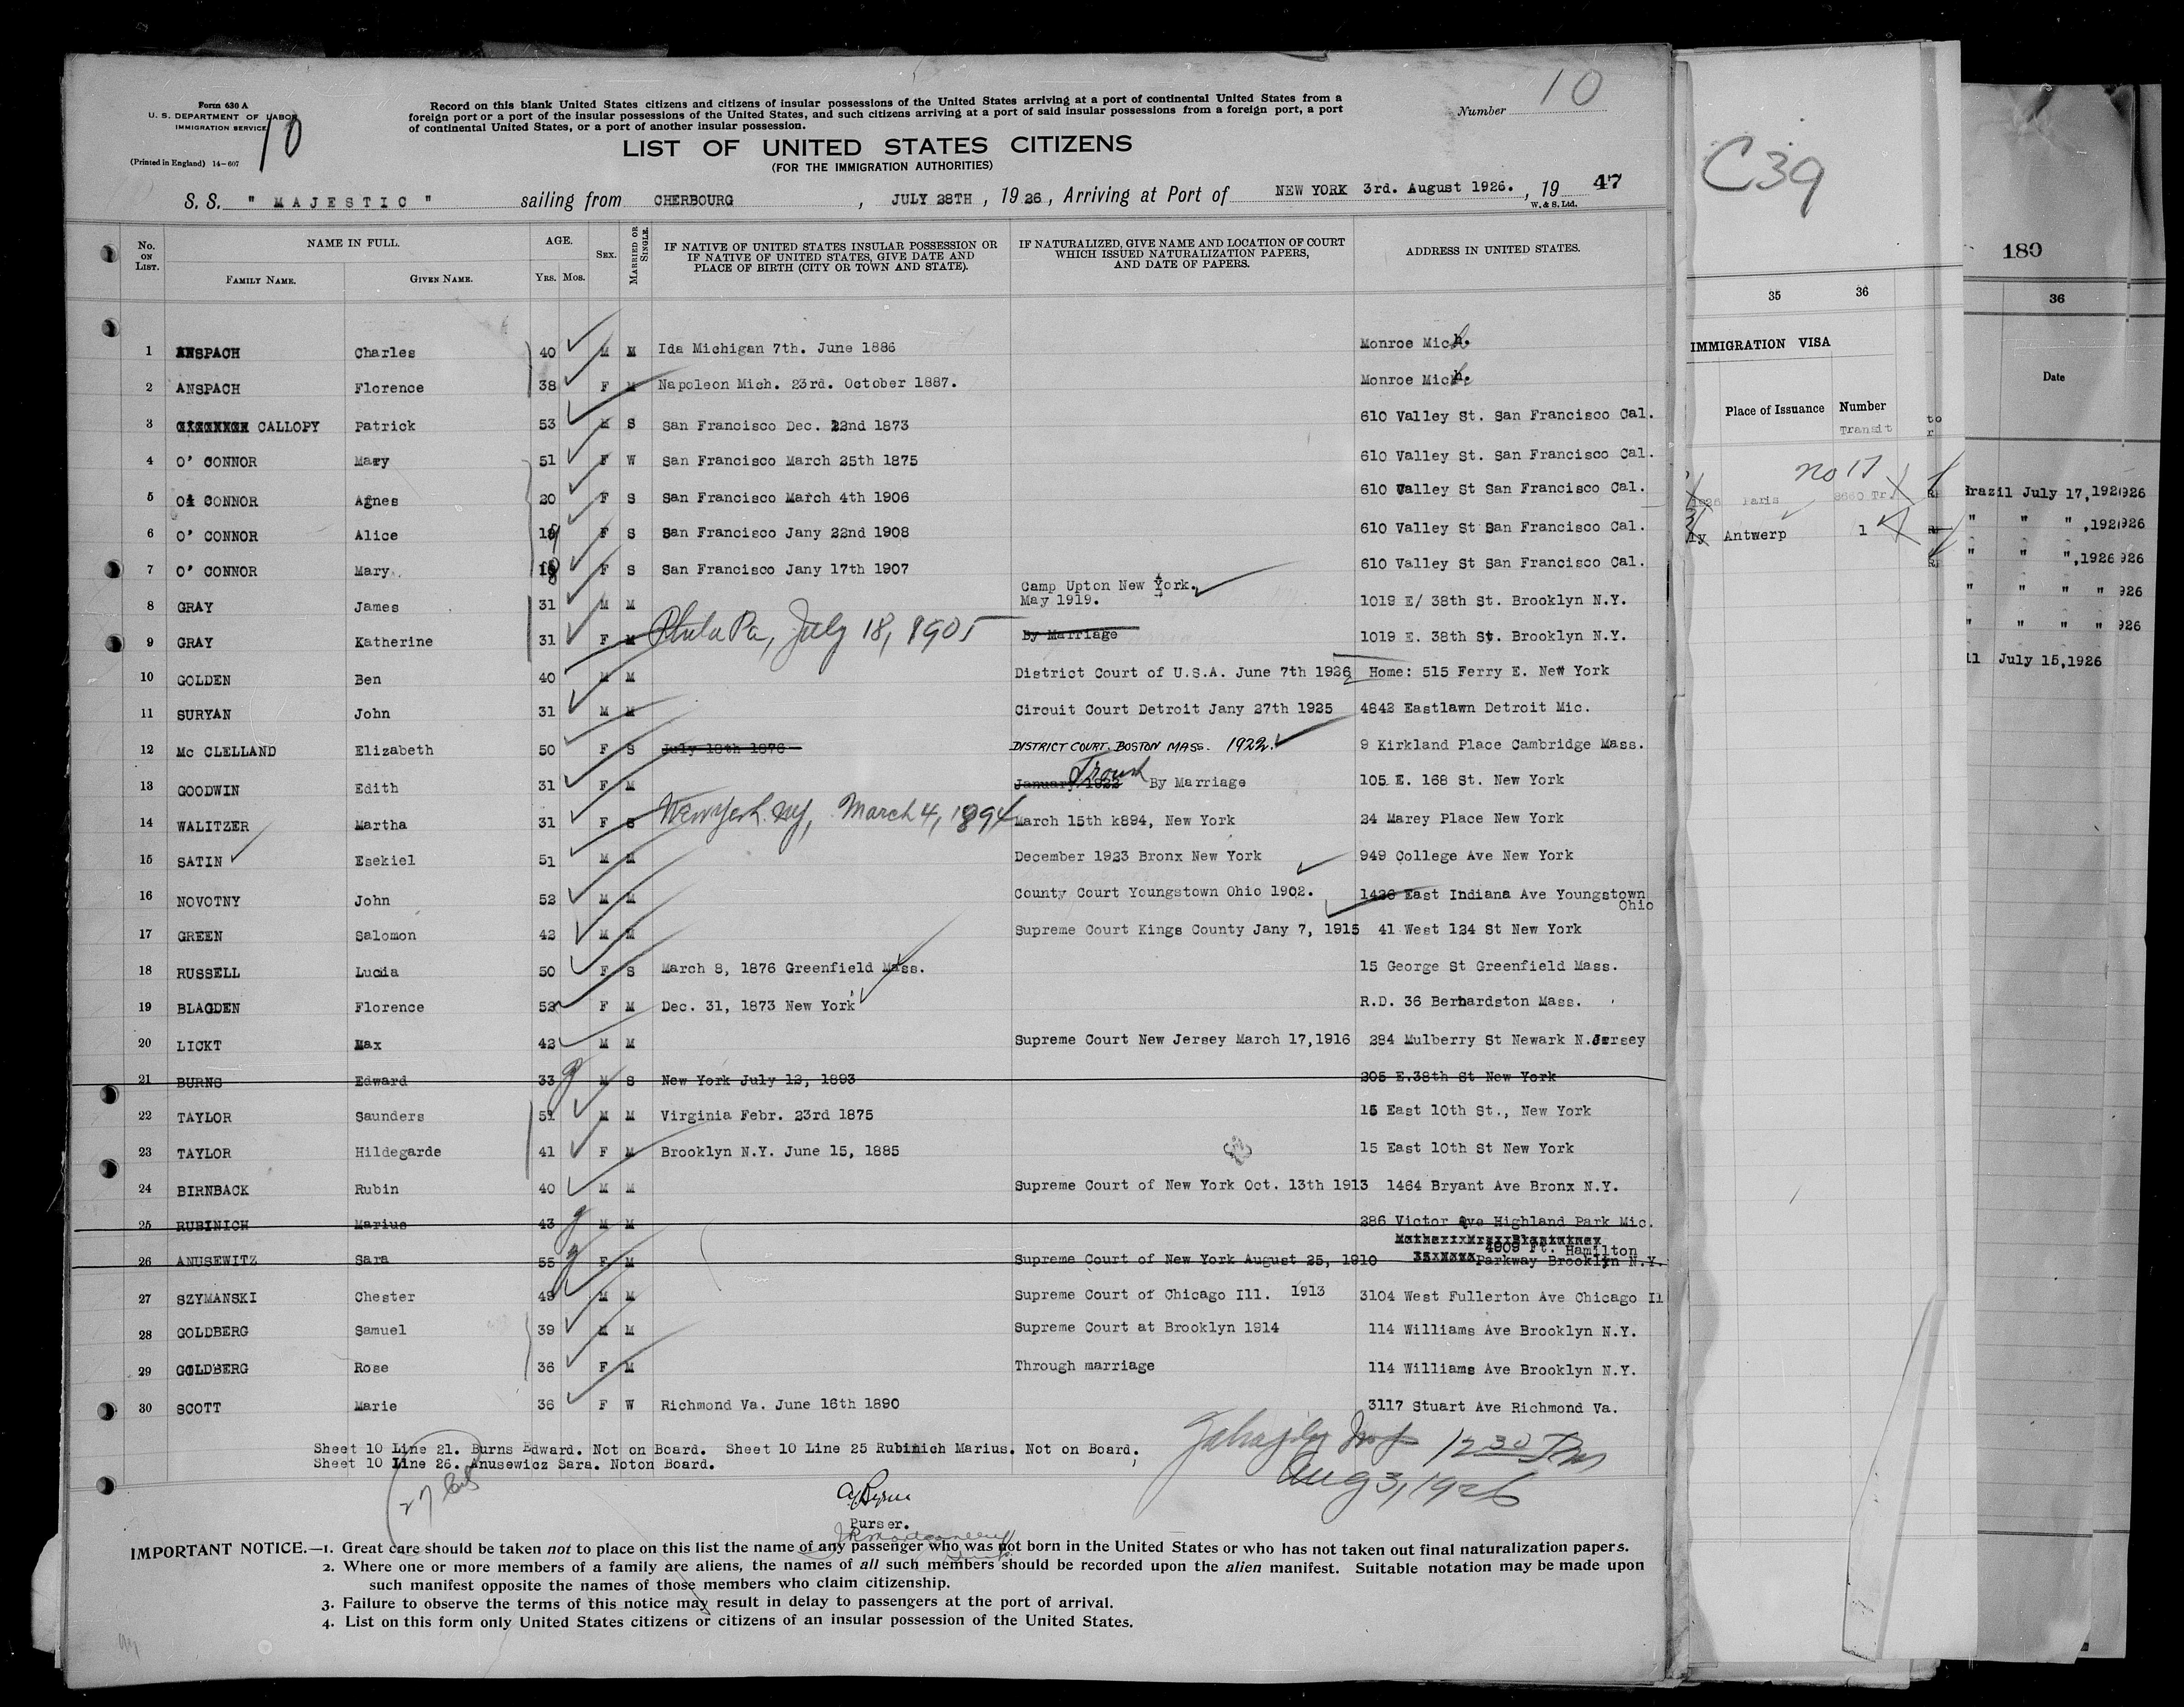 Form 630 A
U. S. DEPARTMENT OF LABOR
IMMIGRATION SERVICE
(Printed in England) 14-607
10
Record on this blank United States citizens and citizens of insular possessions of the United States arriving at a port of continental United States from a
foreign port or a port of the insular possessions of the United States, and such citizens arriving at a port of said insular possessions from a foreign port, a port
of continental United States, or a port of another insular possession.
Number 10
LIST OF UNITED STATES CITIZENS
(FOR THE IMMIGRATION AUTHORITIES)
S. S. " MAJESTIC " sailing from CHERBOURG , JULY 28TH , 1926 , Arriving at Port of NEW YORK 3rd. August 1926. , 19 47
W. & S. Ltd.
No. ON LIST. NAME IN FULL. AGE. SEX. MARRIED OR SINGLE. IF NATIVE OF UNITED STATES INSULAR POSSESSION OR IF NATIVE OF UNITED STATES, GIVE DATE AND PLACE OF BIRTH (CITY OR TOWN AND STATE). IF NATURALIZED, GIVE NAME AND LOCATION OF COURT WHICH ISSUED NATURALIZATION PAPERS, AND DATE OF PAPERS. ADDRESS IN UNITED STATES.
FAMILY NAME. GIVEN NAME. YRS. MOS.
1 ANSPACH Charles 40 M M Ida Michigan 7th. June 1886 Monroe Mich.
2 ANSPACH Florence 38 F M Napoleon Mich. 23rd. October 1887. Monroe Mich.
3 CALLOPY Patrick 53 M S San Francisco Dec. 22nd 1873 610 Valley St. San Francisco Cal.
4 O' CONNOR Mary 51 F W San Francisco March 25th 1875 610 Valley St. San Francisco Cal.
5 O' CONNOR Agnes 20 F S San Francisco March 4th 1906 610 Valley St San Francisco Cal.
6 O' CONNOR Alice F S San Francisco Jany 22nd 1908 610 Valley St San Francisco Cal.
7 O' CONNOR Mary F S San Francisco Jany 17th 1907 610 Valley St San Francisco Cal.
8 GRAY James 31 M M Camp Upton New York. May 1919. 1019 E/ 38th St. Brooklyn N.Y.
9 GRAY Katherine 31 F M Phila Pa, July 18, 1905 By Marriage 1019 E. 38th St. Brooklyn N.Y.
10 GOLDEN Ben 40 M M District Court of U.S.A. June 7th 1926 Home: 515 Ferry E. New York
11 SURYAN John 31 M M Circuit Court Detroit Jany 27th 1925 4842 Eastlawn Detroit Mic.
12 Mc CLELLAND Elizabeth 50 F S July 18th 1876 DISTRICT COURT. BOSTON MASS. 1922. 9 Kirkland Place Cambridge Mass.
13 GOODWIN Edith 31 F M January 1922 By Marriage 105 E. 168 St. New York
14 WALITZER Martha 31 F S New York. NY, March 4, 1894 March 15th k894, New York 24 Marey Place New York
15 SATIN Esekiel 51 M M December 1923 Bronx New York 949 College Ave New York
16 NOVOTNY John 52 M M County Court Youngstown Ohio 1902. 1426 East Indiana Ave Youngstown Ohio
17 GREEN Salomon 42 M M Supreme Court Kings County Jany 7, 1915 41 West 124 St New York
18 RUSSELL Lucia 50 F S March 8, 1876 Greenfield Mass. 15 George St Greenfield Mass.
19 BLAGDEN Florence 52 F M Dec. 31, 1873 New York R.D. 36 Bernardston Mass.
20 LICKT Max 42 M M Supreme Court New Jersey March 17,1916 284 Mulberry St Newark N.Jersey
21 BURNS Edward 33 M S New York July 12, 1893 205 E.38th St New York
22 TAYLOR Saunders 51 M M Virginia Febr. 23rd 1875 15 East 10th St., New York
23 TAYLOR Hildegarde 41 F M Brooklyn N.Y. June 15, 1885 15 East 10th St New York
24 BIRNBACK Rubin 40 M M Supreme Court of New York Oct. 13th 1913 1464 Bryant Ave Bronx N.Y.
25 RUBINICH Marius 43 M M 286 Victor Ave Highland Park Mic.
26 ANUSEWITZ Sara 55 F M Supreme Court of New York August 25, 1910 4909 Ft. Hamilton Parkway Brooklyn N.Y.
27 SZYMANSKI Chester 48 M M Supreme Court of Chicago Ill. 1913 3104 West Fullerton Ave Chicago Il
28 GOLDBERG Samuel 39 M M Supreme Court at Brooklyn 1914 114 Williams Ave Brooklyn N.Y.
29 GOLDBERG Rose 36 F M Through marriage 114 Williams Ave Brooklyn N.Y.
30 SCOTT Marie 36 F W Richmond Va. June 16th 1890 3117 Stuart Ave Richmond Va.
Sheet 10 Line 21. Burns Edward. Not on Board. Sheet 10 Line 25 Rubinich Marius. Not on Board.
Sheet 10 Line 26. Anusewicz Sara. Noton Board.
12 30 Pm
Aug 3, 1926
Purser.
IMPORTANT NOTICE.—1. Great care should be taken not to place on this list the name of any passenger who was not born in the United States or who has not taken out final naturalization papers.
2. Where one or more members of a family are aliens, the names of all such members should be recorded upon the alien manifest. Suitable notation may be made upon
such manifest opposite the names of those members who claim citizenship.
3. Failure to observe the terms of this notice may result in delay to passengers at the port of arrival.
4. List on this form only United States citizens or citizens of an insular possession of the United States.
C39
35 36
IMMIGRATION VISA
Place of Issuance Number
Transit
no 17
Paris
Antwerp 1
180
36
Date
Brazil July 17, 1926
July 15, 1926